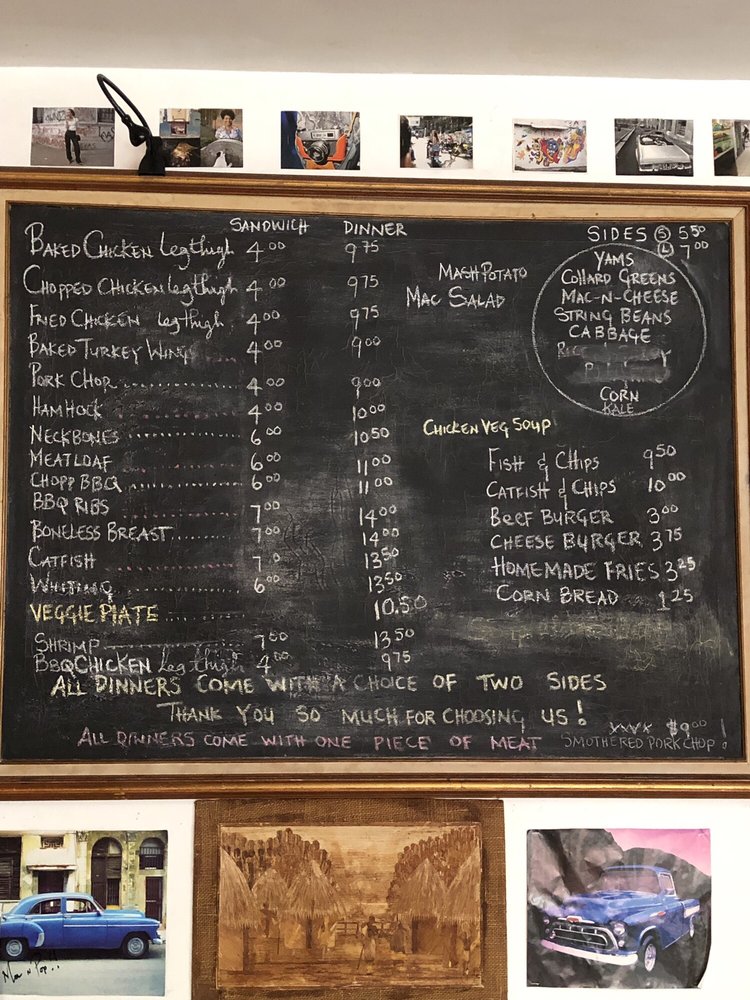 SANDWICH DINNER
BAKED CHICKEN Leg thigh 4.00 9.75
CHOPPED CHICKEN leg thigh 4.00 9.75
FRIED CHICKEN leg thigh 4.00 9.75
BAKED TURKEY WING 4.00 9.00
PORK CHOP 4.00 9.00
HAM HOCK 4.00 10.00
NECKBONES 6.00 10.50
MEATLOAF 6.00 11.00
CHOPP BBQ 6.00 11.00
BBQ RIBS 7.00 14.00
BONELESS BREAST 7.00 14.00
CATFISH 7.0 13.50
WHITING 6.00 13.50
VEGGIE PLATE 10.50
SHRIMP 7.00 13.50
BBQ CHICKEN leg thigh 4.00 9.75
MASH POTATO
MAC SALAD
SIDES (S) 5.50
(L) 7.00
YAMS
COLLARD GREENS
MAC-N-CHEESE
STRING BEANS
CABBAGE
CORN
KALE
CHICKEN VEG SOUP
FISH & CHIPS 9.50
CATFISH & CHIPS 10.00
BEEF BURGER 3.00
CHEESE BURGER 3.75
HOMEMADE FRIES 3.25
CORN BREAD 1.25
ALL DINNERS COME WITH A CHOICE OF TWO SIDES
THANK YOU SO MUCH FOR CHOOSING US!
ALL DINNERS COME WITH ONE PIECE OF MEAT
$9.00
SMOTHERED PORK CHOP!